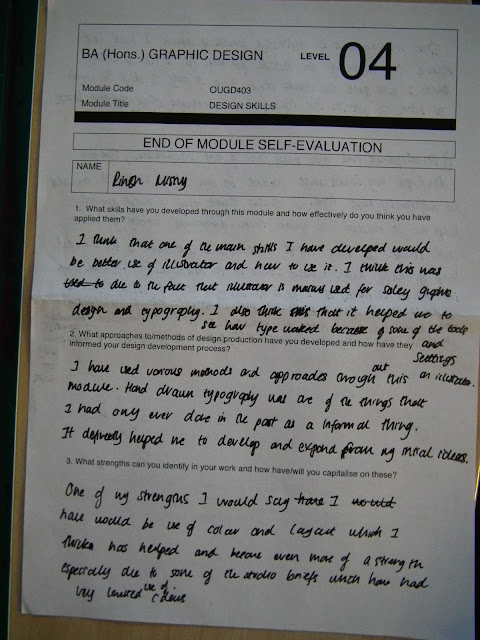 BA (Hons.) GRAPHIC DESIGN LEVEL 04
Module Code OUGD403
Module Title DESIGN SKILLS
END OF MODULE SELF-EVALUATION
NAME
1. What skills have you developed through this module and how effectively do you think you have
applied them?
I think that one of the main skills I have developed would
be better use of illustrator and how to use it. I think this was
used to due to the fact that illustrator is mainly used for soley graphic
design and typography. I also think that it helped me to
see how type worked because of some of the tools
and settings
on illustrator.
2. What approaches to/methods of design production have you developed and how have they
informed your design development process?
I have used various methods and approaches through out this
module. Hand drawn typography was one of the things that
I had only ever done in the past as a informal thing.
It definetly helped me to develop and expand from my initial ideas.
3. What strengths can you identify in your work and how have/will you capitalise on these?
One of my strengths I would say have I would
have would be use of colour and layout which I
think has helped and become even more of a strength
especially due to some of the studio briefs which have had
very limited use of colours